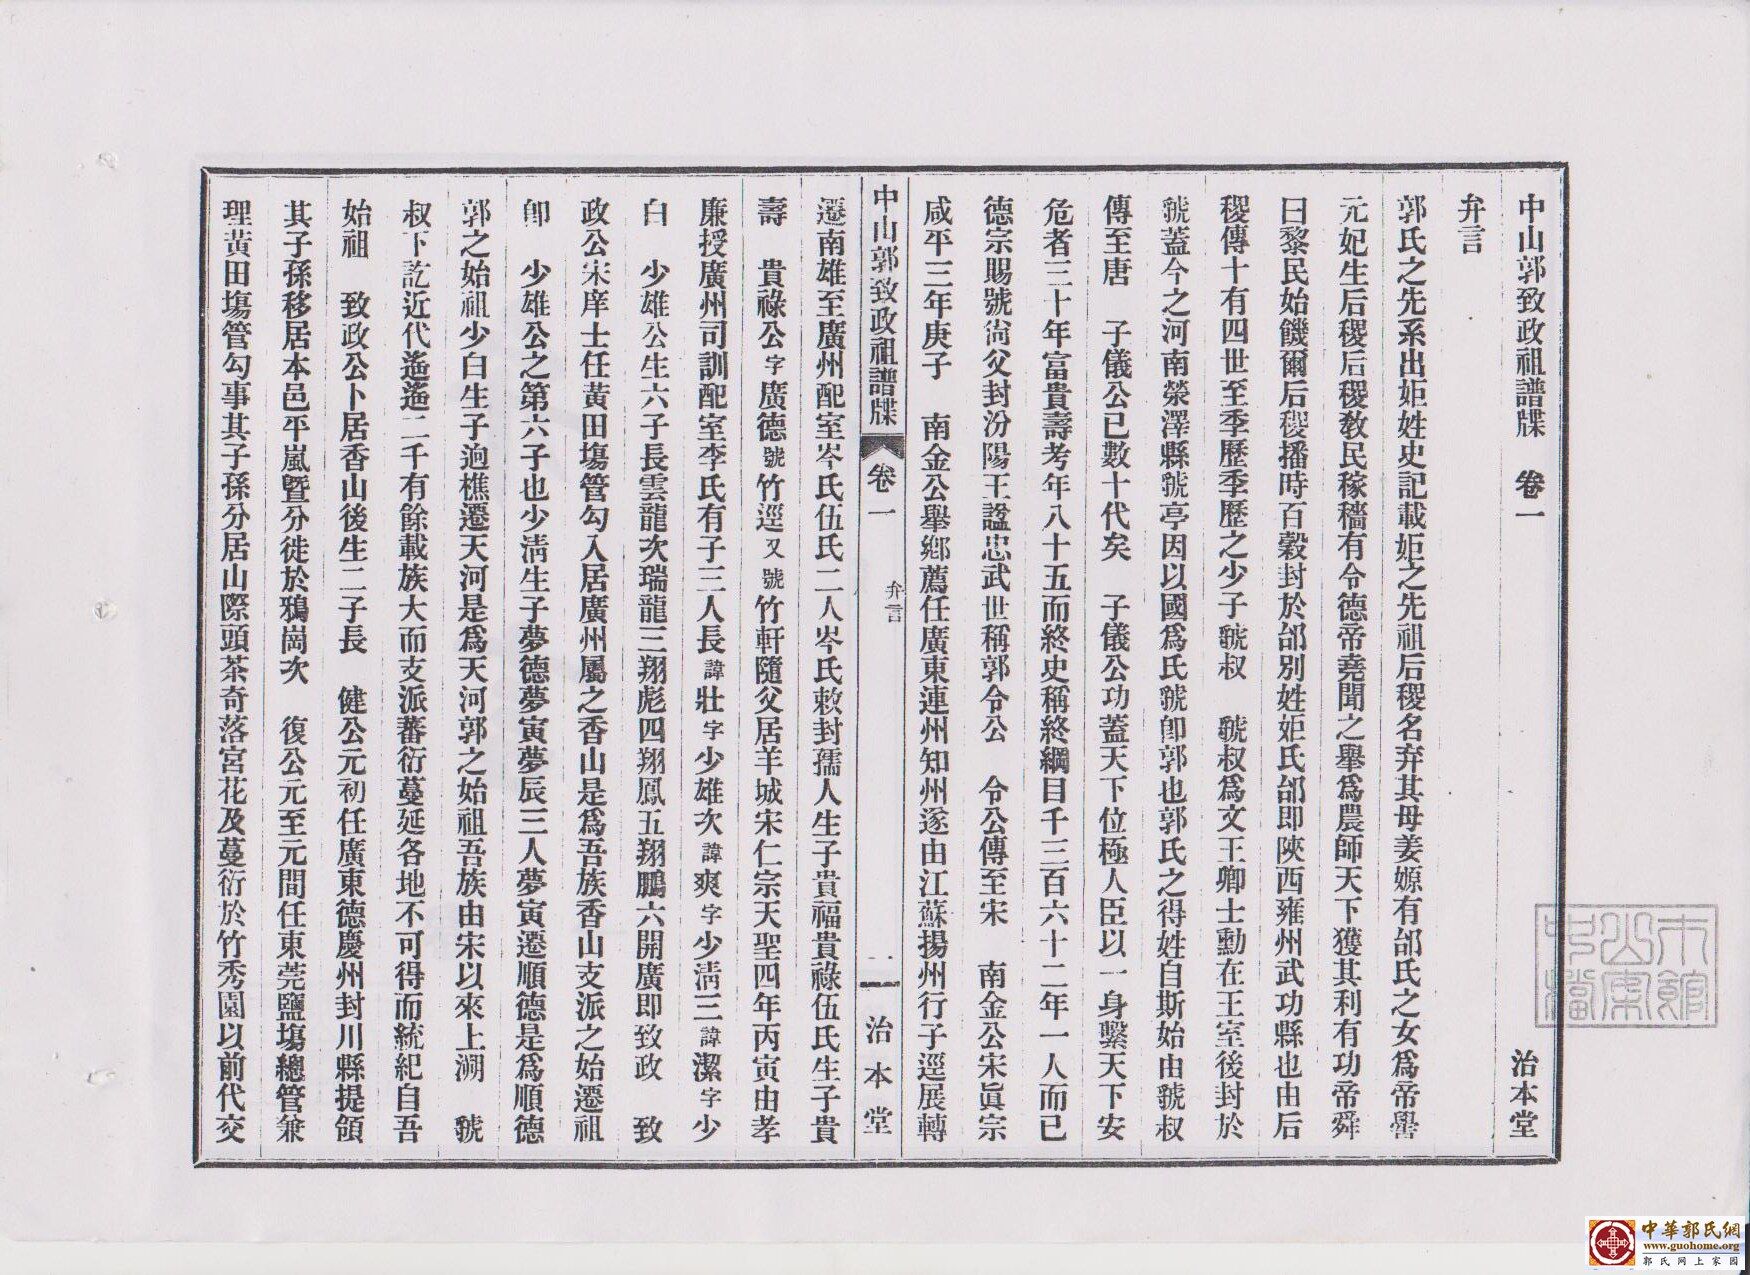 中山郭致政祖譜牒 卷一 治本堂
弁言
郭氏之先系出姫姓史記載姫之先祖后稷名弃其母姜嫄有邰氏之女爲帝嚳
元妃生后稷后稷敎民稼穡有令德帝堯聞之舉爲農師天下獲其利有功帝舜
曰黎民始饑爾后稷播時百穀封於邰別姓姫氏邰即陝西雍州武功縣也由后
稷傳十有四世至季歷季歷之少子虢叔 虢叔爲文王卿士勳在王室後封於
虢蓋今之河南滎澤縣虢亭因以國爲氏虢卽郭也郭氏之得姓自斯始由虢叔
傳至唐 子儀公已數十代矣 子儀公功蓋天下位極人臣以一身繫天下安
危者三十年富貴壽考年八十五而終史稱終綱目千三百六十二年一人而已
德宗賜號尙父封汾陽王諡忠武世稱郭令公 令公傳至宋 南金公宋眞宗
咸平三年庚子 南金公舉鄉薦任廣東連州知州遂由江蘇揚州行子逕展轉
中山郭致政祖譜牒 卷一 弁言 一 治本堂
遷南雄至廣州配室岑氏伍氏二人岑氏敕封孺人生子貴福貴祿伍氏生子貴
壽 貴祿公字廣德號竹逕又號竹軒隨父居羊城宋仁宗天聖四年丙寅由孝
廉授廣州司訓配室李氏有子三人長諱壯字少雄次諱爽字少淸三諱潔字少
白 少雄公生六子長雲龍次瑞龍三翔彪四翔鳳五翔鵬六開廣即致政 致
政公宋庠士任黃田塲管勾入居廣州屬之香山是爲吾族香山支派之始遷祖
卽 少雄公之第六子也少淸生子夢德夢寅夢辰三人夢寅遷順德是爲順德
郭之始祖少白生子逈樵遷天河是爲天河郭之始祖吾族由宋以來上溯 虢
叔下訖近代遙遙二千有餘載族大而支派蕃衍蔓延各地不可得而統紀自吾
始祖 致政公卜居香山後生二子長 健公元初任廣東德慶州封川縣提領
其子孫移居本邑平嵐曁分徙於鴉崗次 復公元至元間任東莞鹽塲總管兼
理黃田塲管勾事其子孫分居山際頭茶奇落宮花及蔓衍於竹秀園以前代交
中山市檔案館
中華郭氏網
www.guohome.org
郭氏网上家园